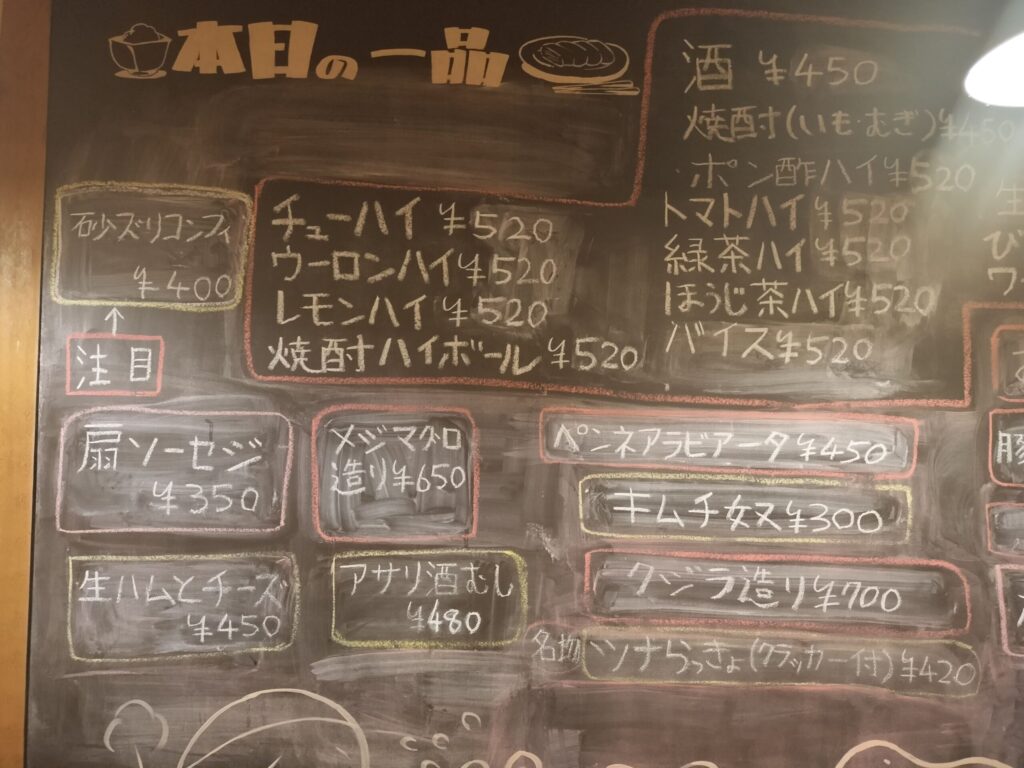 本日の一品
酒 ¥450
焼酎(いも・むぎ)¥450
ポン酢ハイ¥520
トマトハイ¥520
緑茶ハイ¥520
ほうじ茶ハイ¥520
バイス¥520
チューハイ ¥520
ウーロンハイ¥520
レモンハイ ¥520
焼酎ハイボール¥520
砂ズリコンフィ
¥400
↑
注目
扇ソーセジ
¥350
メジマグロ
造り¥650
ペンネアラビアータ¥450
キムチ奴¥300
クジラ造り¥700
生ハムとチーズ
¥450
アサリ酒むし
¥480
名物 ツナらっきょ(クラッカー付)¥420
生
び
ワ
豚